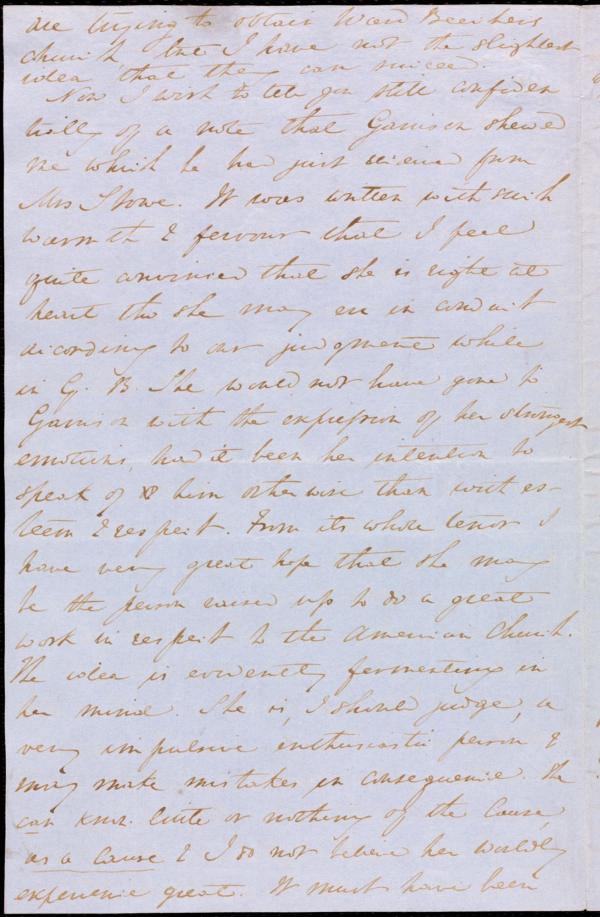 are trying to obtain Ward Beechers
church, but I have not the slightest
idea that they can succeed.
Now I wish to tell you still confiden
tially of a note that Garrison shewed
me which he had just received from
Mrs Stowe. It was written with such
warmth & fervour that I feel
quite convinced that she is right at
heart tho she may err in conduct
according to our judgment while
in G. B. She would not have gone to
Garrison with the expression of her strongest
emotions, had it been her intention to
speak of him otherwise than with es-
teem & respect. From its whole tenor I
have very great hope that she may
be the person raised up to do a great
work in respect to the American Church.
The idea is evidently fermenting in
her mind. She is, I should judge, a
very impulsive enthusiastic person &
may make mistakes in consequence. She
can know little or nothing of the Cause,
as a Cause & I do not believe her worldly
experience great. It must have been